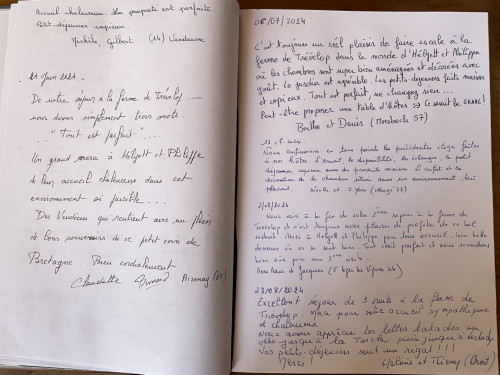 Accueil chaleureux. La propreté est parfaite.
Petit-déjeuner copieux.
Michèle, Gilbert (14) Vendeuvre
24 Juin 2024.
De notre séjour à la ferme de Trevelop
nous dirons simplement trois mots.
"Tout est parfait" ....
Un grand merci à Heljett et Philippe
de leur accueil chaleureux dans cet
environnement si paisible....
Des Vendéens qui rentrent avec un plein
de bons souvenirs de ce petit coin de
Bretagne. Bien cordialement
Claudette Armand Aizenay (85)
06/07/2024
C'est toujours un réel plaisir de faire escale à la
ferme de Trévelop dans le monde d'Heljett et Philippe
où les chambres sont super bien aménagées et décorées avec
goût. Le jardin est agréable. Les petits déjeuners faits maison
et copieux. Tout est parfait, ne changez rien...
Peut-être proposer une table d'hôtes → Ce serait le GRAAL!
Berthe et Denis (Morsbach 57)
Nous confirmons en tous points les précédents éloges faites
à nos hôtes d'accueil, la disponibilité, les échanges, le petit
déjeuner copieux avec des produits maison. Le confort et la
décoration de la chambre située dans un environnement très
plaisant.
2/08/2024
Nous voici à la fin de notre 2ème séjour à la ferme de
Trévelop et c'est toujours avec plaisir de profiter de ce bel
endroit. Merci à Heljett et Philippe pour leur accueil, leur belle
demeure où on se sent bien. Tout était parfait et nous reviendrons
bien sûr pour une 3ème visite.
23/08/2024
Excellent séjour de 3 nuits à la ferme de
Trévelop. Merci pour votre accueil sympathique
et chaleureux.
Nous avons apprécié les belles balades en
vélo jusqu'à la
Vos petits-déjeuners sont un régal !!!
Merci! Hélène et Thierry